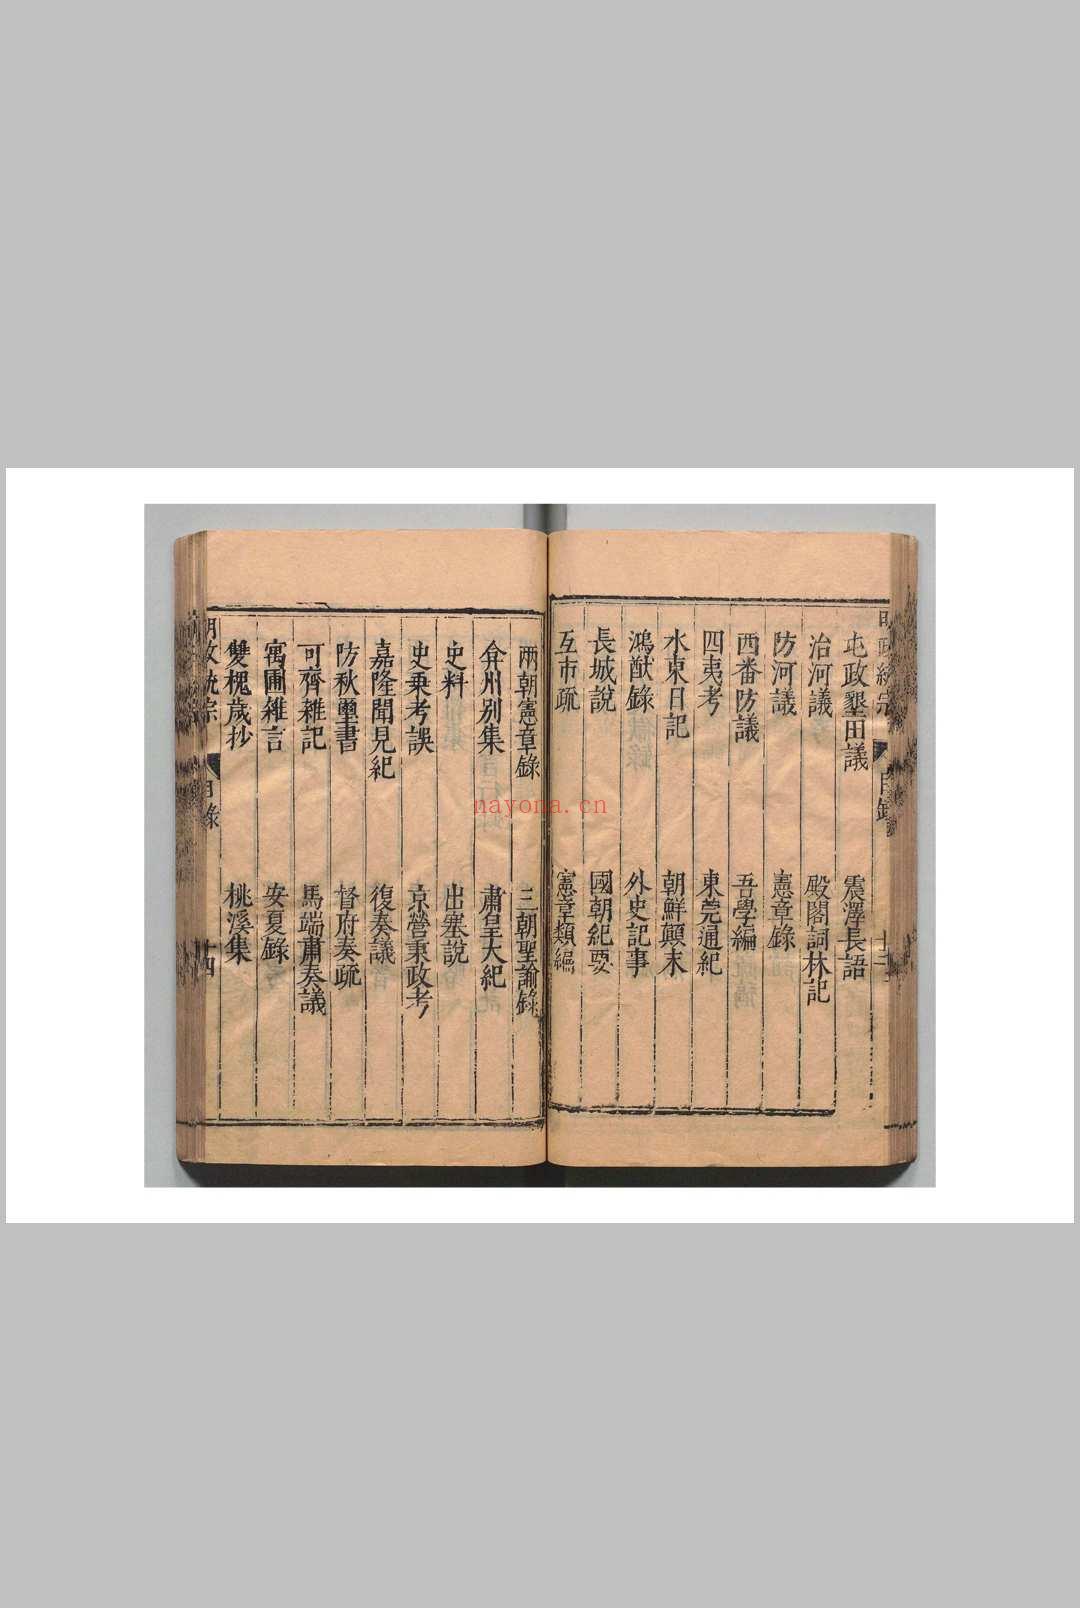 屯政墾田議 震澤長語
治河議 殿閣詞林記
防河議 憲章錄
西番防議 吾學編
四夷考 東莞通紀
水東日記 朝鮮顛末
鴻猷錄 外史記事
長城說 國朝紀要
互市疏 憲章類編
兩朝憲章錄 三朝聖諭錄
弇州別集 肅皇大紀
史料 出塞說
史乗考誤 京營秉政考
嘉隆聞見紀 復奏議
防秋璽書 督府奏疏
可齊雜記 馬端肅奏議
寓圃雜言 安夏錄
雙槐歲抄 桃溪集
明政統宗 目錄 十四
nayona.cn